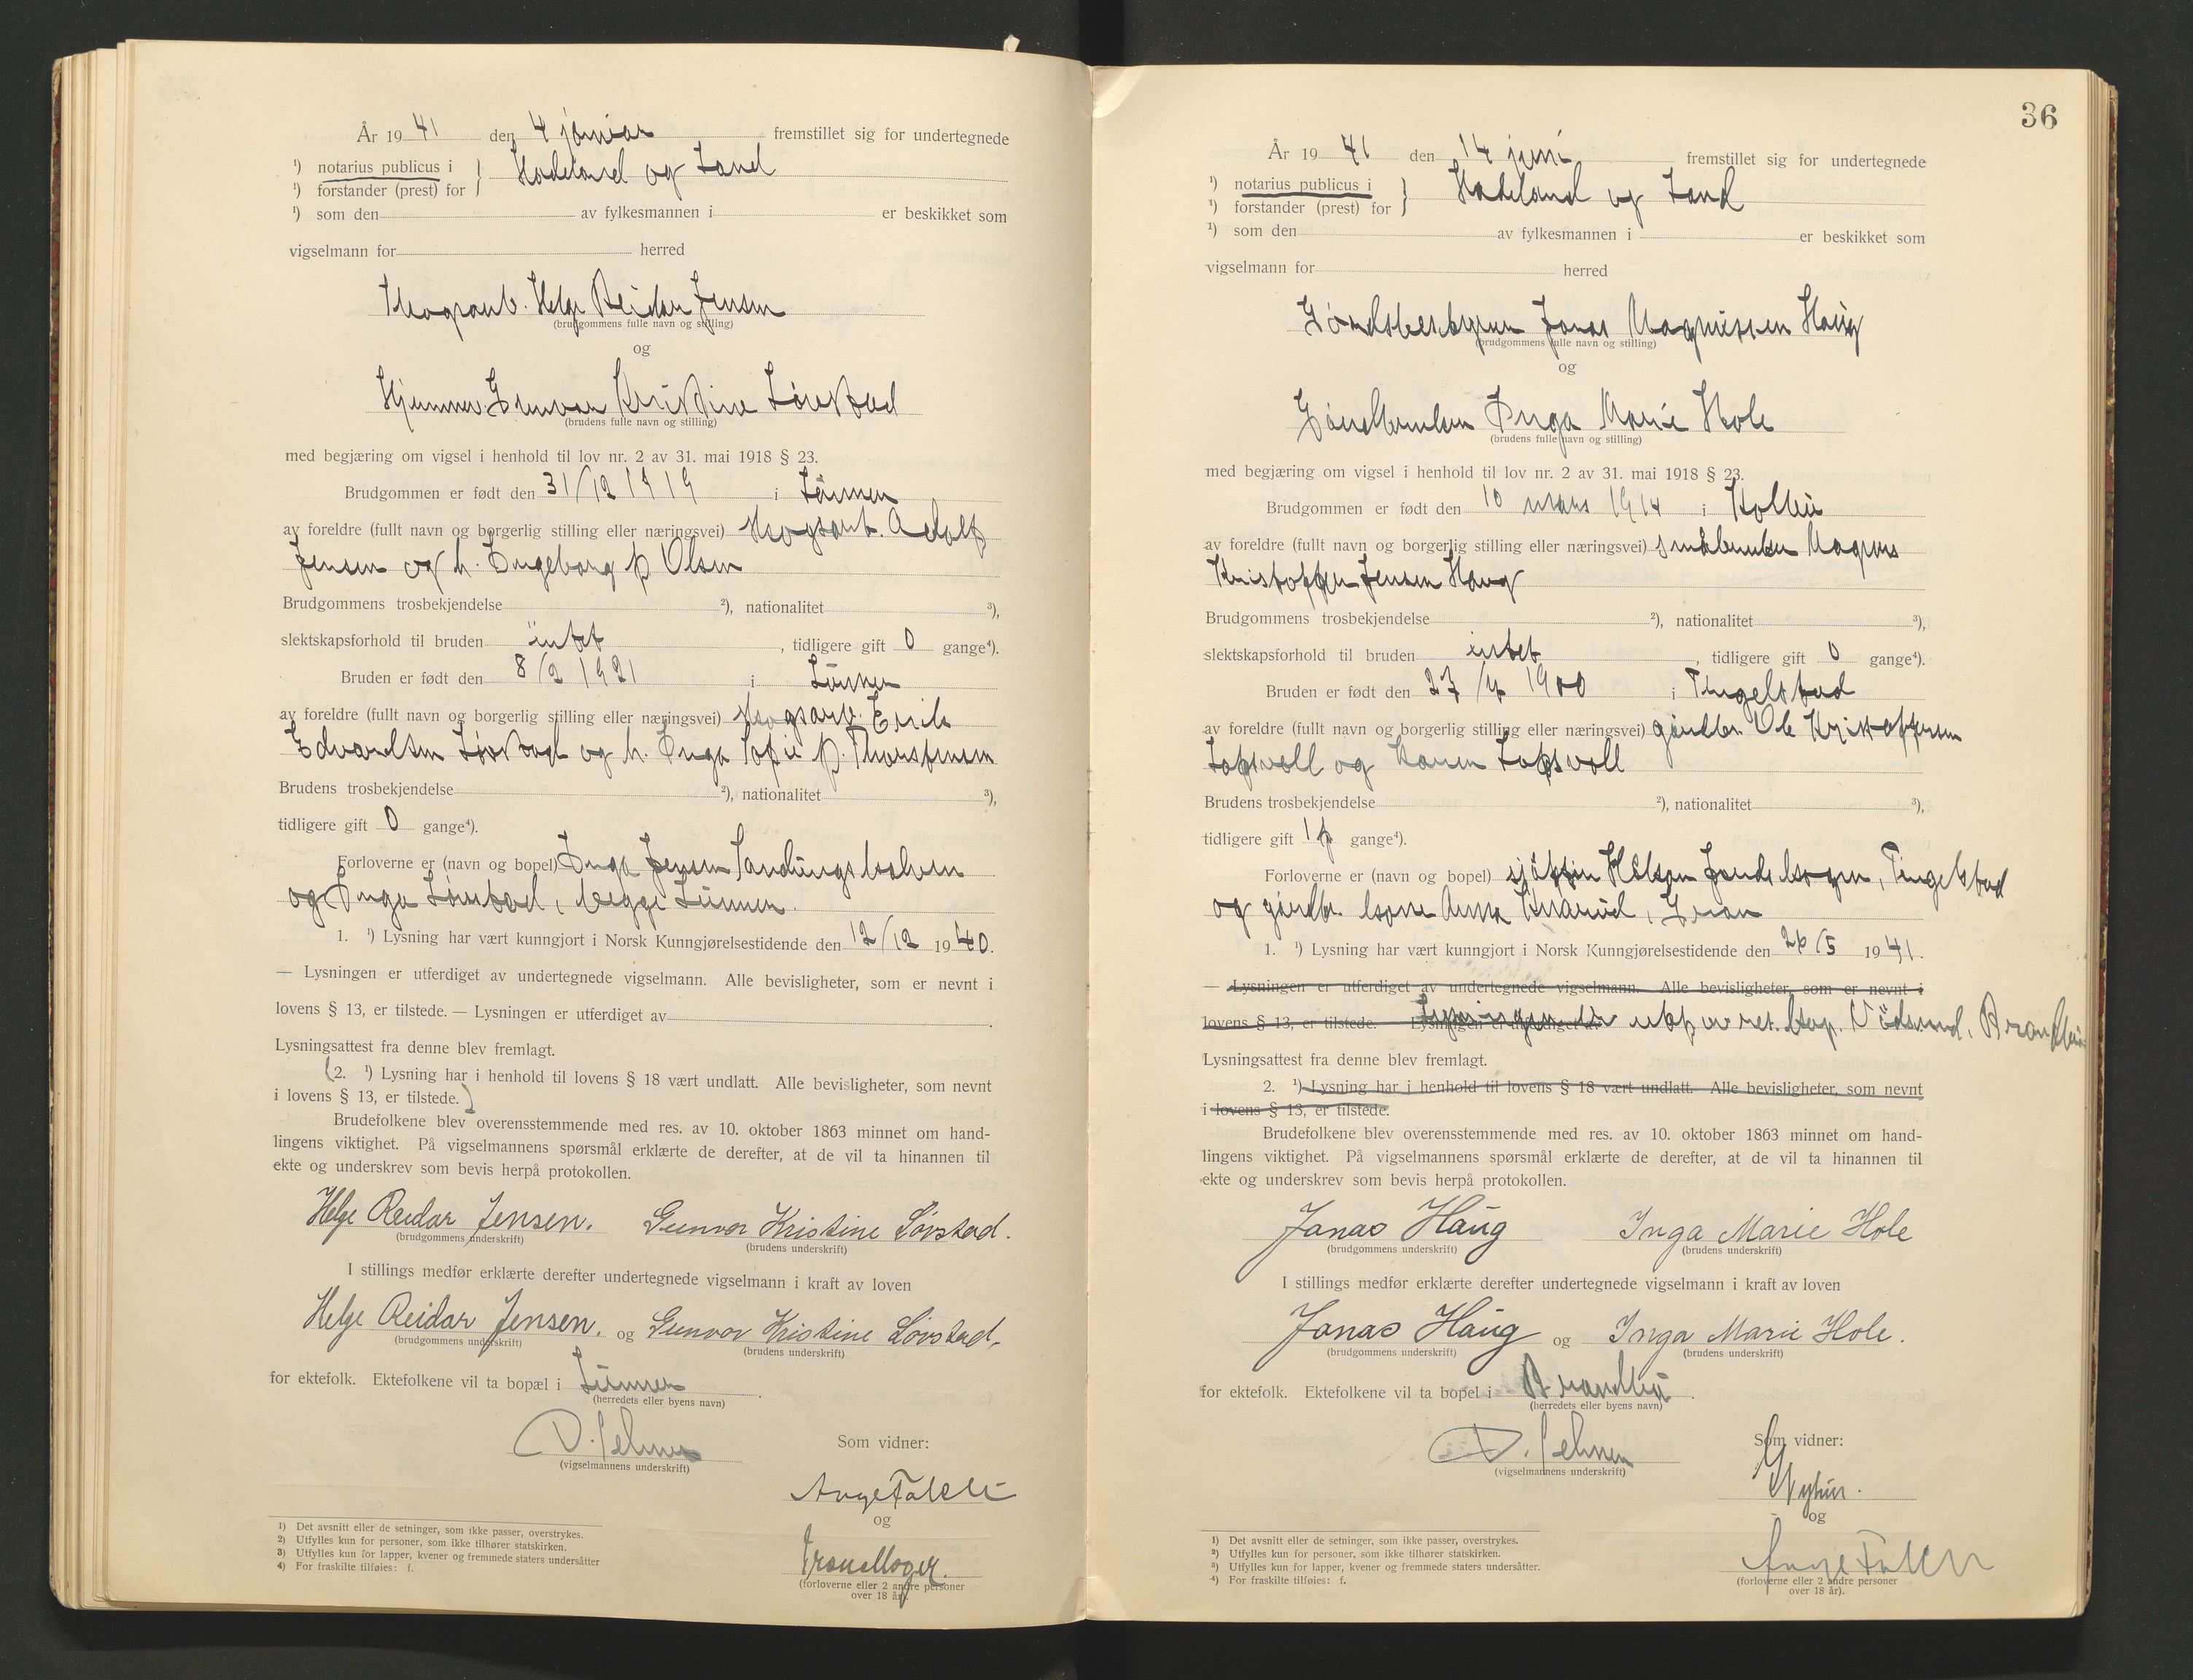 År 19 41 den 4 januar fremstillet sig for undertegnede
¹) notarius publicus i
¹) forstander (prest) for
} Hadeland og Land
¹) som den av fylkesmannen i er beskikket som
vigselmann for herred
Helge Reidar Jensen
(brudgommens fulle navn og stilling)
og
Gunvor Kristine Løvstad
(brudens fulle navn og stilling)
med begjæring om vigsel i henhold til lov nr. 2 av 31. mai 1918 § 23.
Brudgommen er født den 31/12 1919 i Lunner
av foreldre (fullt navn og borgerlig stilling eller næringsvei) skogsarb. Adolf
Jensen og h. Ingeborg f. Olsen
Brudgommens trosbekjendelse ²), nationalitet ³),
slektskapsforhold til bruden intet , tidligere gift 0 gange⁴).
Bruden er født den 8/2 1921 i Lunner
av foreldre (fullt navn og borgerlig stilling eller næringsvei) skogsarb. Erik
Edvardsen Løvstad og h. Inga Sofie f. Thorstensen
Brudens trosbekjendelse ²), nationalitet ³),
tidligere gift 0 gange⁴).
Forloverne er (navn og bopel) Inga Jensen
og Inga Løvstad, begge Lunner.
1. ¹) Lysning har vært kunngjort i Norsk Kunngjørelsestidende den 12/12 1940.
— Lysningen er utferdiget av undertegnede vigselmann. Alle bevisligheter, som er nevnt i
lovens § 13, er tilstede. — Lysningen er utferdiget av .
Lysningsattest fra denne blev fremlagt.
(2. ¹) Lysning har i henhold til lovens § 18 vært undlatt. Alle bevisligheter, som nevnt
i lovens § 13, er tilstede.)
Brudefolkene blev overensstemmende med res. av 10. oktober 1863 minnet om hand-
lingens viktighet. På vigselmannens spørsmål erklærte de derefter, at de vil ta hinannen til
ekte og underskrev som bevis herpå protokollen.
Helge Reidar Jensen. Gunvor Kristine Løvstad.
(brudgommens underskrift) (brudens underskrift)
I stillings medfør erklærte derefter undertegnede vigselmann i kraft av loven
Helge Reidar Jensen. og Gunvor Kristine Løvstad.
(brudgommens underskrift) (brudens underskrift)
for ektefolk. Ektefolkene vil ta bopæl i Lunner .
(herredets eller byens navn)
(vigselmannens underskrift)
Som vidner:
og
(forloverne eller 2 andre personer
over 18 år).
1) Det avsnitt eller de setninger, som ikke passer, overstrykes.
2) Utfylles kun for personer, som ikke tilhører statskirken.
3) Utfylles kun for lapper, kvener og fremmede staters undersåtter
4) For fraskilte tilføies: f.
36
År 19 41 den 14 juni fremstillet sig for undertegnede
¹) notarius publicus i
¹) forstander (prest) for
} Hadeland og Land
¹) som den av fylkesmannen i er beskikket som
vigselmann for herred
Gårdsbestyrer Jonas Magnussen Haug
(brudgommens fulle navn og stilling)
og
Gårdbruker Inga Marie Hole
(brudens fulle navn og stilling)
med begjæring om vigsel i henhold til lov nr. 2 av 31. mai 1918 § 23.
Brudgommen er født den 10 mars 1914 i Kolbu
av foreldre (fullt navn og borgerlig stilling eller næringsvei) småbruker Magnus
Kristoffer Jensen Haug
Brudgommens trosbekjendelse ²), nationalitet ³),
slektskapsforhold til bruden intet , tidligere gift 0 gange⁴).
Bruden er født den 27/4 1900 i Tingelstad
av foreldre (fullt navn og borgerlig stilling eller næringsvei) gårdbr. Ole Kristoffersen
og Karen
Brudens trosbekjendelse ²), nationalitet ³),
tidligere gift 1 f gange⁴).
Forloverne er (navn og bopel) Tingelstad
og gårdbr. kone Anna , Gran
1. ¹) Lysning har vært kunngjort i Norsk Kunngjørelsestidende den 26/5 1941.
— Lysningen er utferdiget av undertegnede vigselmann. Alle bevisligheter, som er nevnt i
lovens § 13, er tilstede. Lysningen er utf av res. kap. Brandbu
Lysningsattest fra denne blev fremlagt.
2. ¹) Lysning har i henhold til lovens § 18 vært undlatt. Alle bevisligheter, som nevnt
i lovens § 13, er tilstede.
Brudefolkene blev overensstemmende med res. av 10. oktober 1863 minnet om hand-
lingens viktighet. På vigselmannens spørsmål erklærte de derefter, at de vil ta hinannen til
ekte og underskrev som bevis herpå protokollen.
Jonas Haug Inga Marie Hole
(brudgommens underskrift) (brudens underskrift)
I stillings medfør erklærte derefter undertegnede vigselmann i kraft av loven
Jonas Haug og Inga Marie Hole.
(brudgommens underskrift) (brudens underskrift)
for ektefolk. Ektefolkene vil ta bopel i Brandbu .
(herredets eller byens navn)
(vigselmannens underskrift)
Som vidner:
og
(forloverne eller 2 andre personer
over 18 år).
1) Det avsnitt eller de setninger, som ikke passer, overstrykes.
2) Utfylles kun for personer, som ikke tilhører statskirken.
3) Utfylles kun for lapper, kvener og fremmede staters undersåtter.
4) For fraskilte tilføies: f.